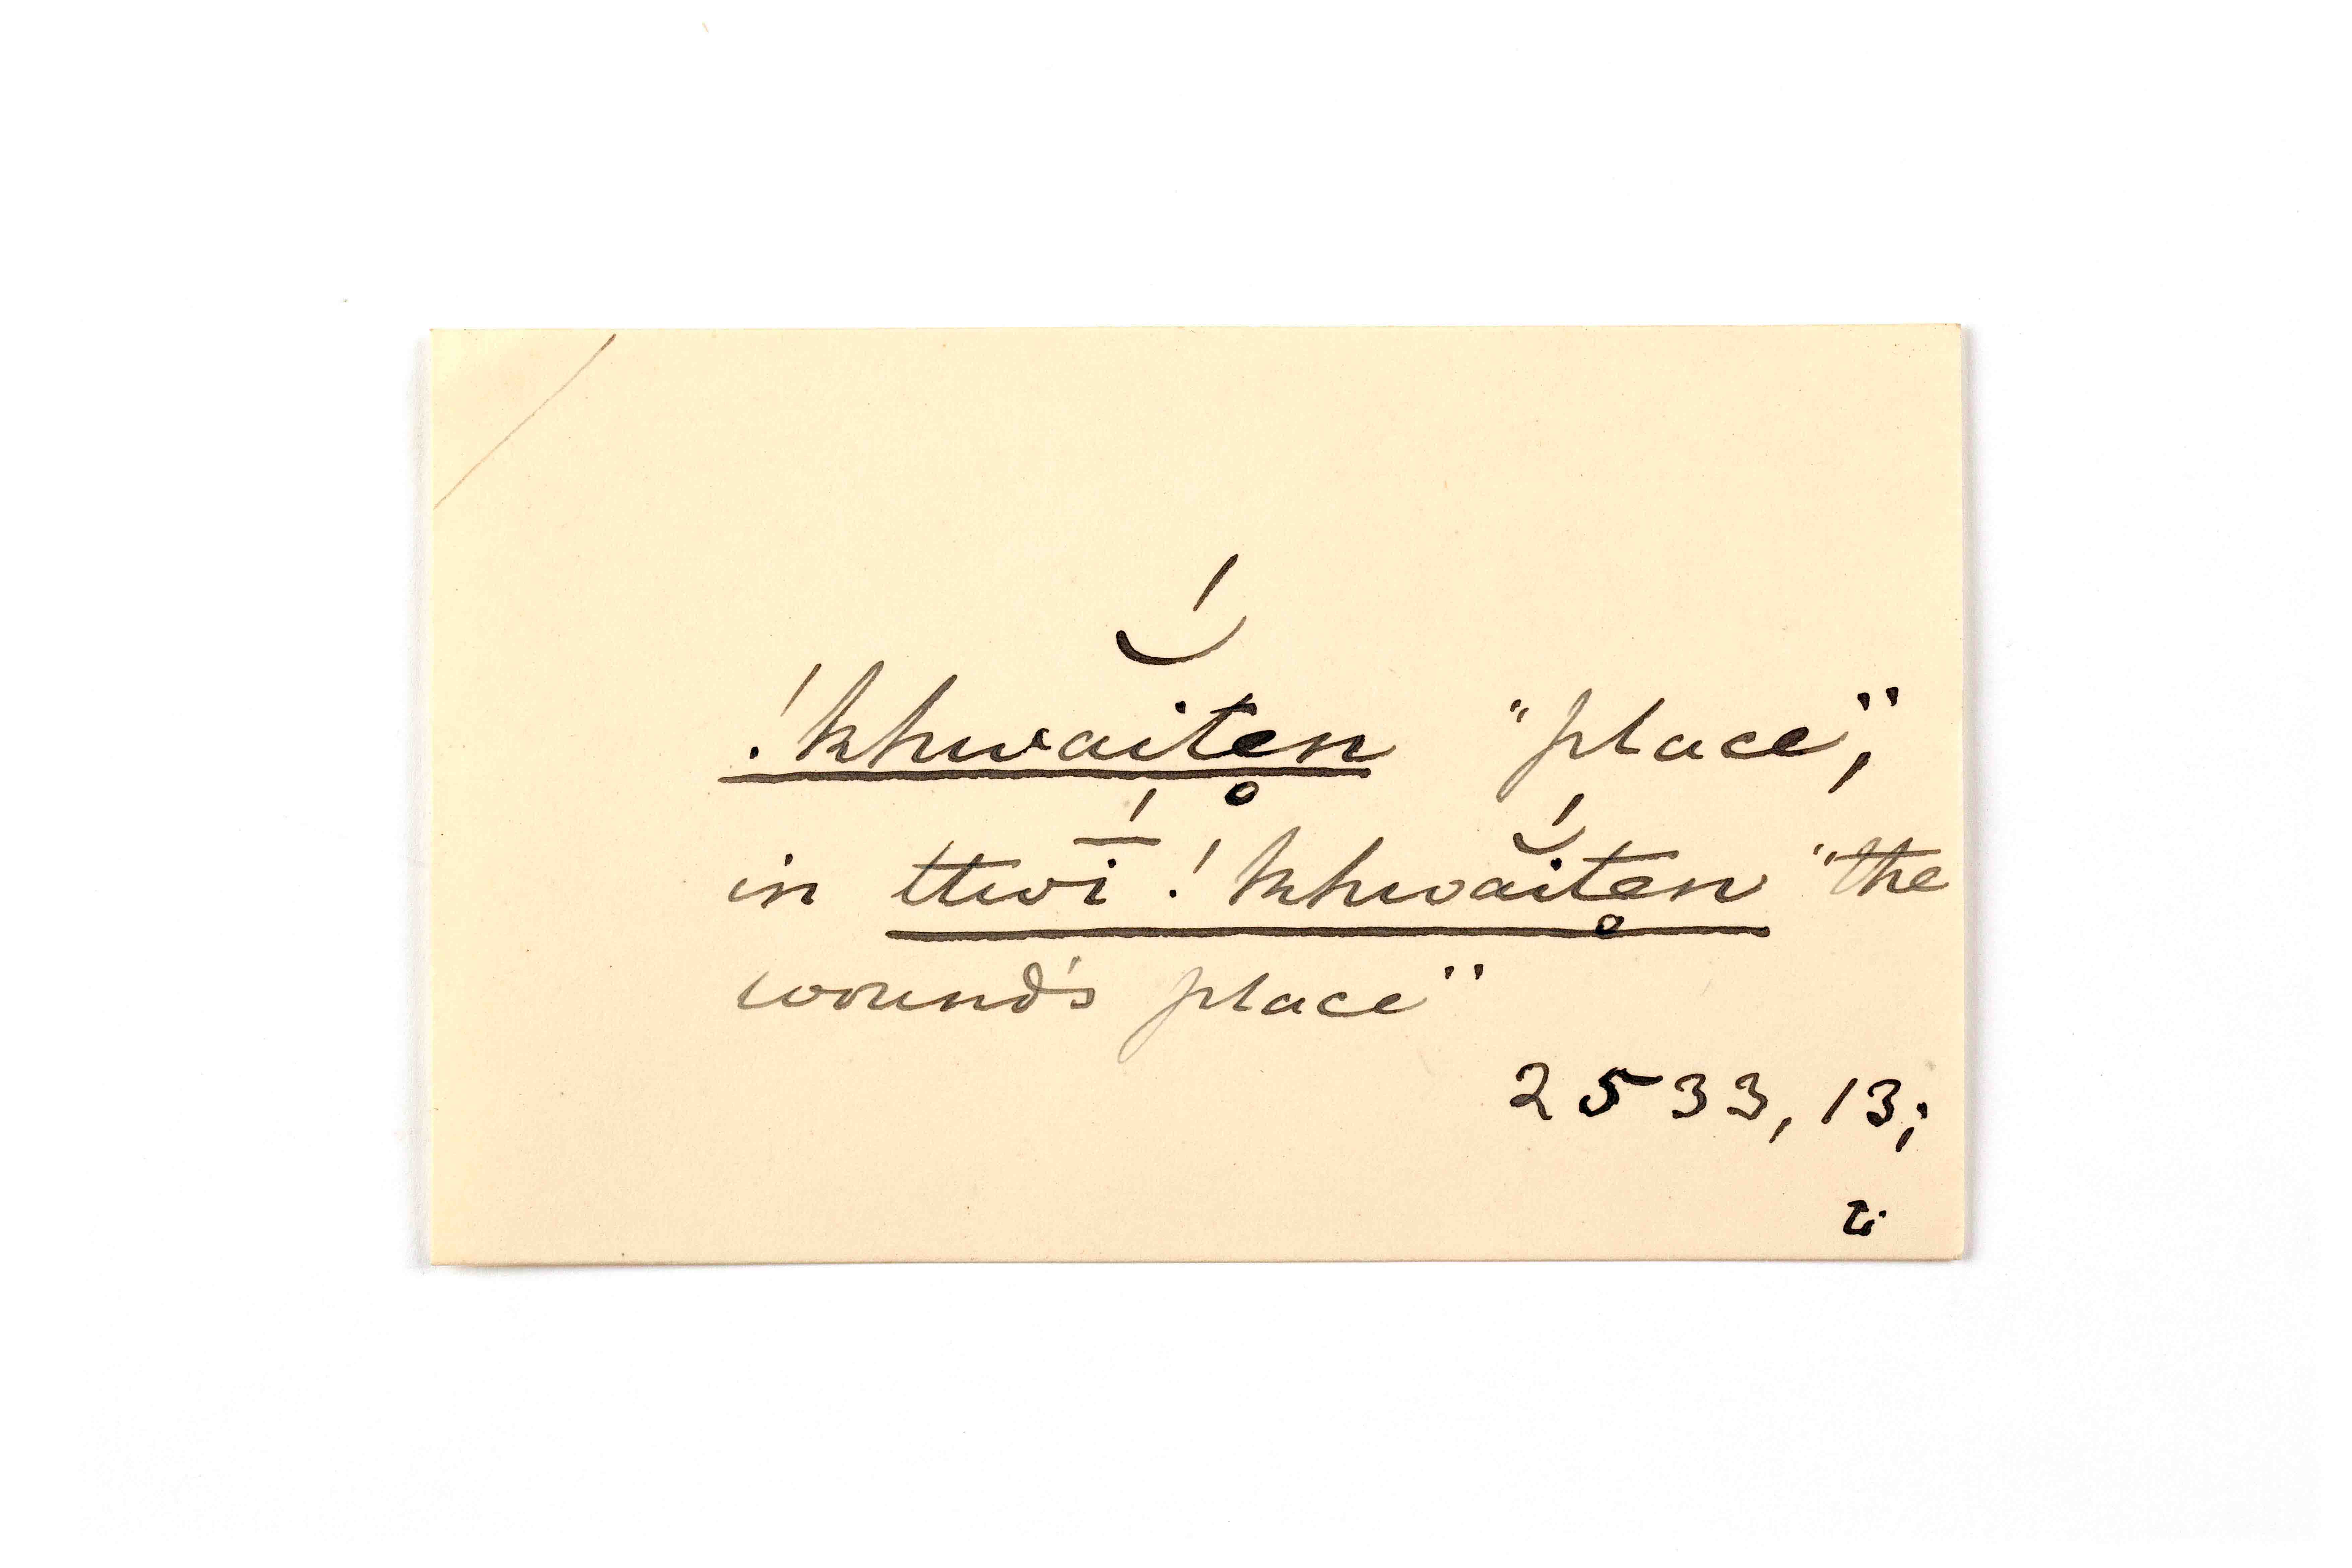 !khwaĭ́tẹn "place",
in ttwī́ !khwaĭ́tẹn "the
wound's place"
2533, 13;